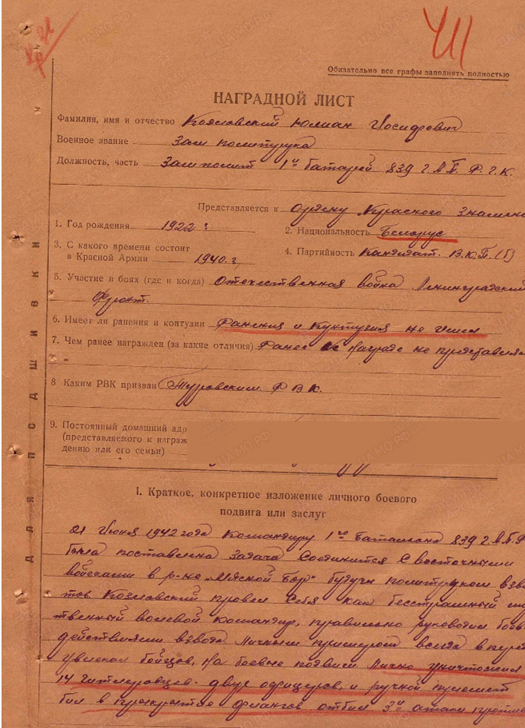 Обязательно все графы заполнять полностью
НАГРАДНОЙ ЛИСТ
Фамилия, имя и отчество Козловский Юлиан Иосифович
Военное звание Зам политрука
Должность, часть Замполит 1ой батареи 839 Г.А.П. Р.Г.К.
Представляется к Ордену Красного Знамени
1. Год рождения 1922 г 2. Национальность Белорус
3. С какого времени состоит
в Красной Армии 1940. г 4. Партийность Кандидат. В.К.П.(б)
5. Участие в боях (где и когда) Отечественная война Ленинградский
фронт.
6. Имеет ли ранения и контузии Ранения и контузия не имел
7. Чем ранее награжден (за какие отличия) Ранее к награде не представлялся
8 Каким РВК призван Туровским Р В К.
9. Постоянный домашний адр
(представляемого к награж
дению или его семьи)
I. Краткое, конкретное изложение личного боевого
подвига или заслуг
21 Июня 1942 года командиру 1го батальона 839 Г.А.П.
была поставлена задача соединится с восточными
войсками в р-не „Мясной Бор" будучи политруком взво
Козловский провел себя как бесстрашный
волевой командир, правильно руководил
действиями взвода личным примером всегда
увлекал бойцов, на боевые подвиги лично уничтожил
14 гитлеровцев двух офицеров, и ручной пулемет
в прикрытие флангов отбил 3и атаки против
ДЛЯ ПОДШИВКИ